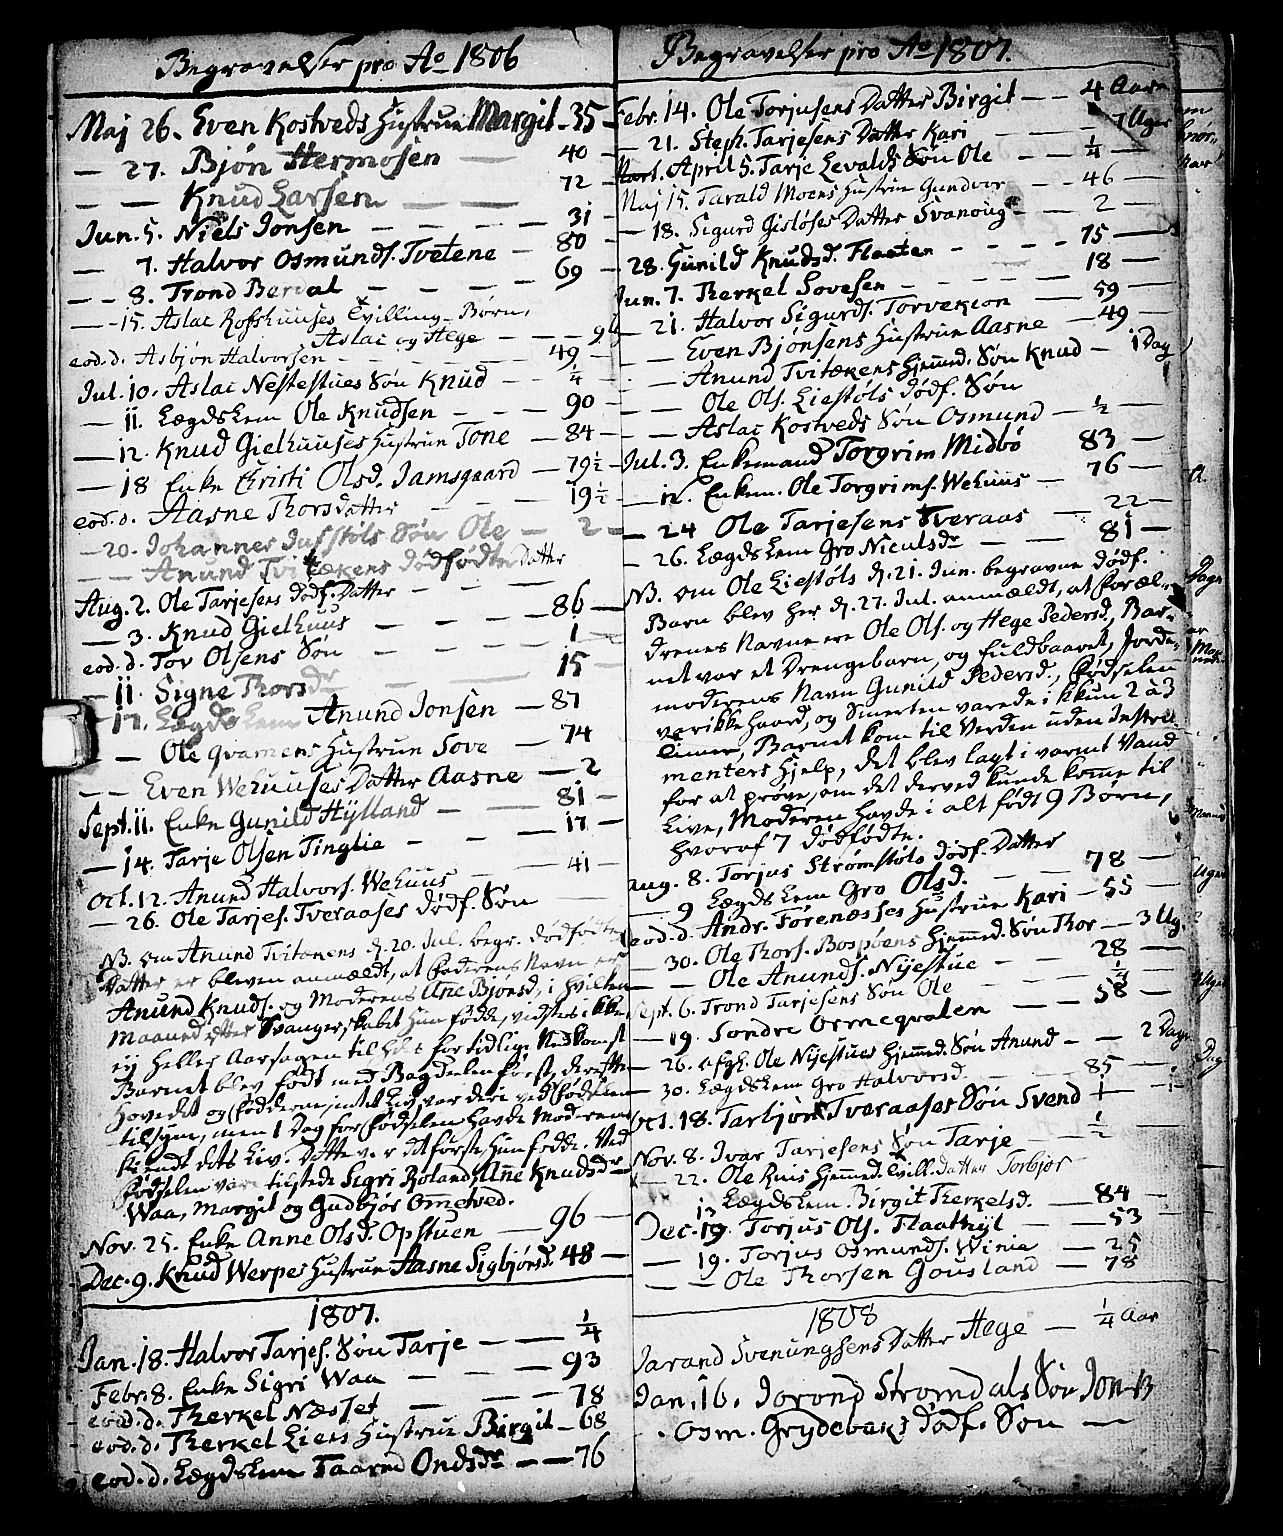 Begravelser pro Ao 1806
Maj 26. Even Kostveds Hustrue Margit - 35 -
— 27. Bjøn Hermosen — 40 —
— — Knud Larsen — — 72 —
Jun. 5. Niels Jonsen — — — — 31 —
— 7. Halvor Osmunds. Tvetene — 80 —
— — 8. Trond Berdal — — — 69 —
— — 15. Aslac Rofshuuses Tvilling-Børn,
Aslac og Hege — — — 9
eod. d. Asbjøn Halvorsen — — — 49 —
Jul. 10. Aslac Nestestues Søn Knud — — ¼ —
— 11. Lægdslem Ole Knudsen — — — 90 —
— 12. Knud Gielhuuses Hustrue Tone — 84 —
— 18 Enke Christi Olsd. Jamsgaard — 79½ —
eod. d. Aasne Thorsdatter — — 19½ —
— 20. Johannes Jusstøls Søn Ole — 2 —
— — Anund Tvitækens dødfødte Datter
Aug. 2. Ole Tarjesens dødf. Datter — —
— 3. Knud Gielhuus — — — 86 —
eod. d. Tov Olsens Søn — — — — 1 —
— 11. Signe Thorsdr — — 15 —
— 17. Lægdslem Anund Jonsen — 87
— Ole Qvamens Hustrue Sove — 74
— — Even Wehuuses Datter Aasne — 2
Sept. 11. Enke Gunild Hÿlland — — 81 —
— 14. Tarje Olsen Tinglie — — — 17 —
Oct. 12. Anund Halvors. Wehuus — — 41 —
— 26. Ole Tarjes. Tveraases dødf. Søn —
NB. om Anund Tvitækens d. 20. Jul. begr. dødfødte
Datter er bleven anmældt, at Faderens Navn er
Anund Knuds. og Moderens Ane Bjønsd, i hvilken
Maaned efter Svangerskabet hun fødde, vidstes ikke,
ej heller Aarsagen til hendes for tidlige Nedkomst
Barnet blev født med Bagdeelen først, derefter
Hovedet og Fødderne, intet Liv var deri ved Fødselen
tilsÿne, men 1 Dag for Fødselen havde Moderen
kiendt dets Liv. Dette var det første, hun fødde. Ved
Fødselen vare tilstede Sigri Roland, Anne Knudsdr
Waa, Margit og Gudbjør Ometved.
Nov. 25. Enke Anne Olsd. Opstuen — 96 —
Dec. 9. Knud Werpes Hustrue Aasne Sigbjønsd. 48 —
1807.
Jan. 18. Halvor Tarjes. Søn Tarje — — ¼
Febr. 8. Enke Sigri Waa — — — 93
eod. d. Therkel Næsset — — — 78
eod. d. Therkel Liens Hustrue Birgit — 68
eod. d. Lægdslem Taarand Ondsdr — — 76
Begravelser pro Ao 1807.
Febr. 14. Ole Torjusens Datter Birgit — — 4 Aar
— 21. Steph. Tarjesens Datter Kari — — 7 Uger
April 5. Tarje Levalds Søn Ole — — ¼ —
Maj 15. Tarald Moens Hustrue Gundvor — — 46 —
— 18. Sigurd Gisløses Datter Svanoug — — 2 —
28. Gunild Knudsd. Flaaten — — — 75 —
Jun. 7. Therkel Sovesen — — — 18 —
— 21. Halvor Sigurds. Torvekion — 59 —
— — Even Bjønsens Hustrue Aasne — 49 —
— — Anund Tvitækens hjemmed. Søn Knud — 1 Dag
— — Ole Ols. Liestøls dødf. Søn
— — Aslac Kostveds Søn Osmund — ½ —
Jul. 3. Enkemand Torgrim Midbø 83 —
— 12. Enkem. Ole Torgrims. Wehuus — 76 —
— 24 Ole Tarjesens Tveraas — 22 —
— 26. Lægdslem Gro Niculsdr — — 81 —
NB. om Ole Liestøls d. 21. Jun. begravne dødf.
Barn blev her d. 27. Jul. anmældt, at Foræl-
drenes Navne ere Ole Ols. og Hege Pedersd, Bar-
net var et Drengebarn, og fuldbaaret, Jorde-
moderens Navn Gunild Pedersd., Fødselen
var ikke haard, og Smerten varede i kkun 2 à 3
Timer, Barnet kom til Verden uden Instru-
menters Hjelp, det blev lagt i varmt Vand
for at prøve, om det derved kunde komme til
Live, Moderen havde i alt født 9 Børn,
hvoraf 7 dødfødte.
Aug. 8. Torjus Strømstøls dødf. Datter
— 9 Lægdslem Gro Olsd. — — 78 —
eod. d. Andr. Førenæsses Hustrue Kari — 55 —
— 30. Ole Thors. Bospøens hjemmed. Søn Thor — 3 Ug.
— — Ole Anunds. Nijestue — — 28 —
Sept. 6. Trond Tarjesens Søn Ole — — ¼ —
— 19. Sondre Ormeqvalen — — 58 —
— 26. afgl. Ole Nijestues hjemmed. Søn Anund — — 2 Dage
— 30. Lægdslem Gro Halvorsd. — — 85 —
Oct. 18. Tarbjøn Tveraases Søn Svend
Nov. 8. Ivar Tarjesens Søn Tarje — — ½ —
— 22. Ole Ruis hjemmed. Tvill. Datter Torbjør
13 Lægdslem. Birgit Therkelsd. — 84 —
Dec. 19. Torjus Ols. Flaathÿl — — 53 —
— 19. Torjus Osmunds. Winie — 25 —
— — Ole Thorsen Gousland — 78 —
1808
Jarand Svenungsens Datter Hege — ¼ Aar
Jan. 16. Jorond Stromdals Søn Jon 13
Osm. Grydebæks dødf. Søn —